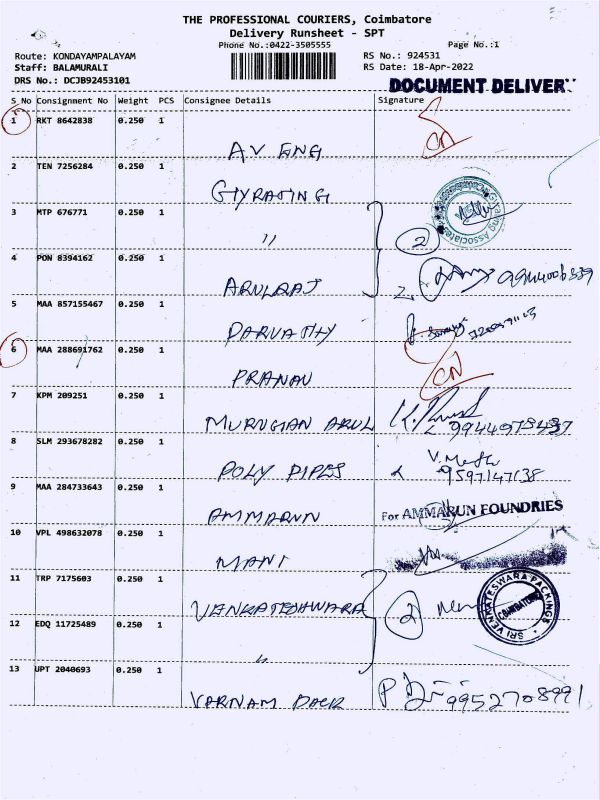 THE PROFESSIONAL COURIERS, Coimbatore
Delivery Runsheet - SPT
Phone No.:0422-3505555
Page No.:1
Route: KONDAYAMPALAYAM
RS No.: 924531
Staff: BALAMURALI
RS Date: 18-Apr-2022
DRS No.: DCJB92453101
DOCUMENT DELIVER
S No Consignment No Weight PCS Consignee Details Signature
1 RKT 8642838 0.250 1 AV ENG CN
2 TEN 7256284 0.250 1 GIYRATING
3 MTP 676771 0.250 1 " 2
4 PON 8394162 0.250 1 ARULRAJ
5 MAA 857155467 0.250 1 PARVATHY
6 MAA 288691762 0.250 1 PRANAV CN
7 KPM 209251 0.250 1 MURUGIAN ARUL
8 SLM 293678282 0.250 1 POLY PIPES 9597147638
9 MAA 284733643 0.250 1 AMMARUN For AMMARUN FOUNDRIES
10 VPL 498632078 0.250 1 MANI
11 TRP 7175603 0.250 1 VENKATESHWARA 2
SRI VENKATESWARA PACKINGS
COIMBATORE
12 EDQ 11725489 0.250 1 "
13 UPT 2040693 0.250 1 VARNAM PACK 9952708991